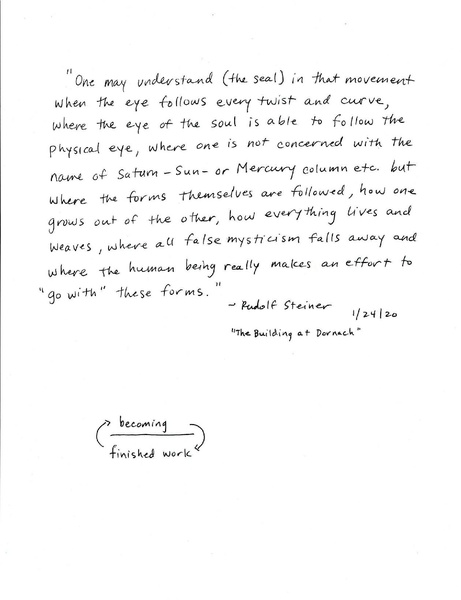 "One may understand (the seal) in that movement
when the eye follows every twist and curve,
where the eye of the soul is able to follow the
physical eye, where one is not concerned with the
name of Saturn - Sun - or Mercury column etc. but
where the forms themselves are followed, how one
grows out of the other, how everything lives and
weaves, where all false mysticism falls away and
where the human being really makes an effort to
"go with" these forms."
- Rudolf Steiner 1/24/20
"The Building at Dornach"
becoming
finished work